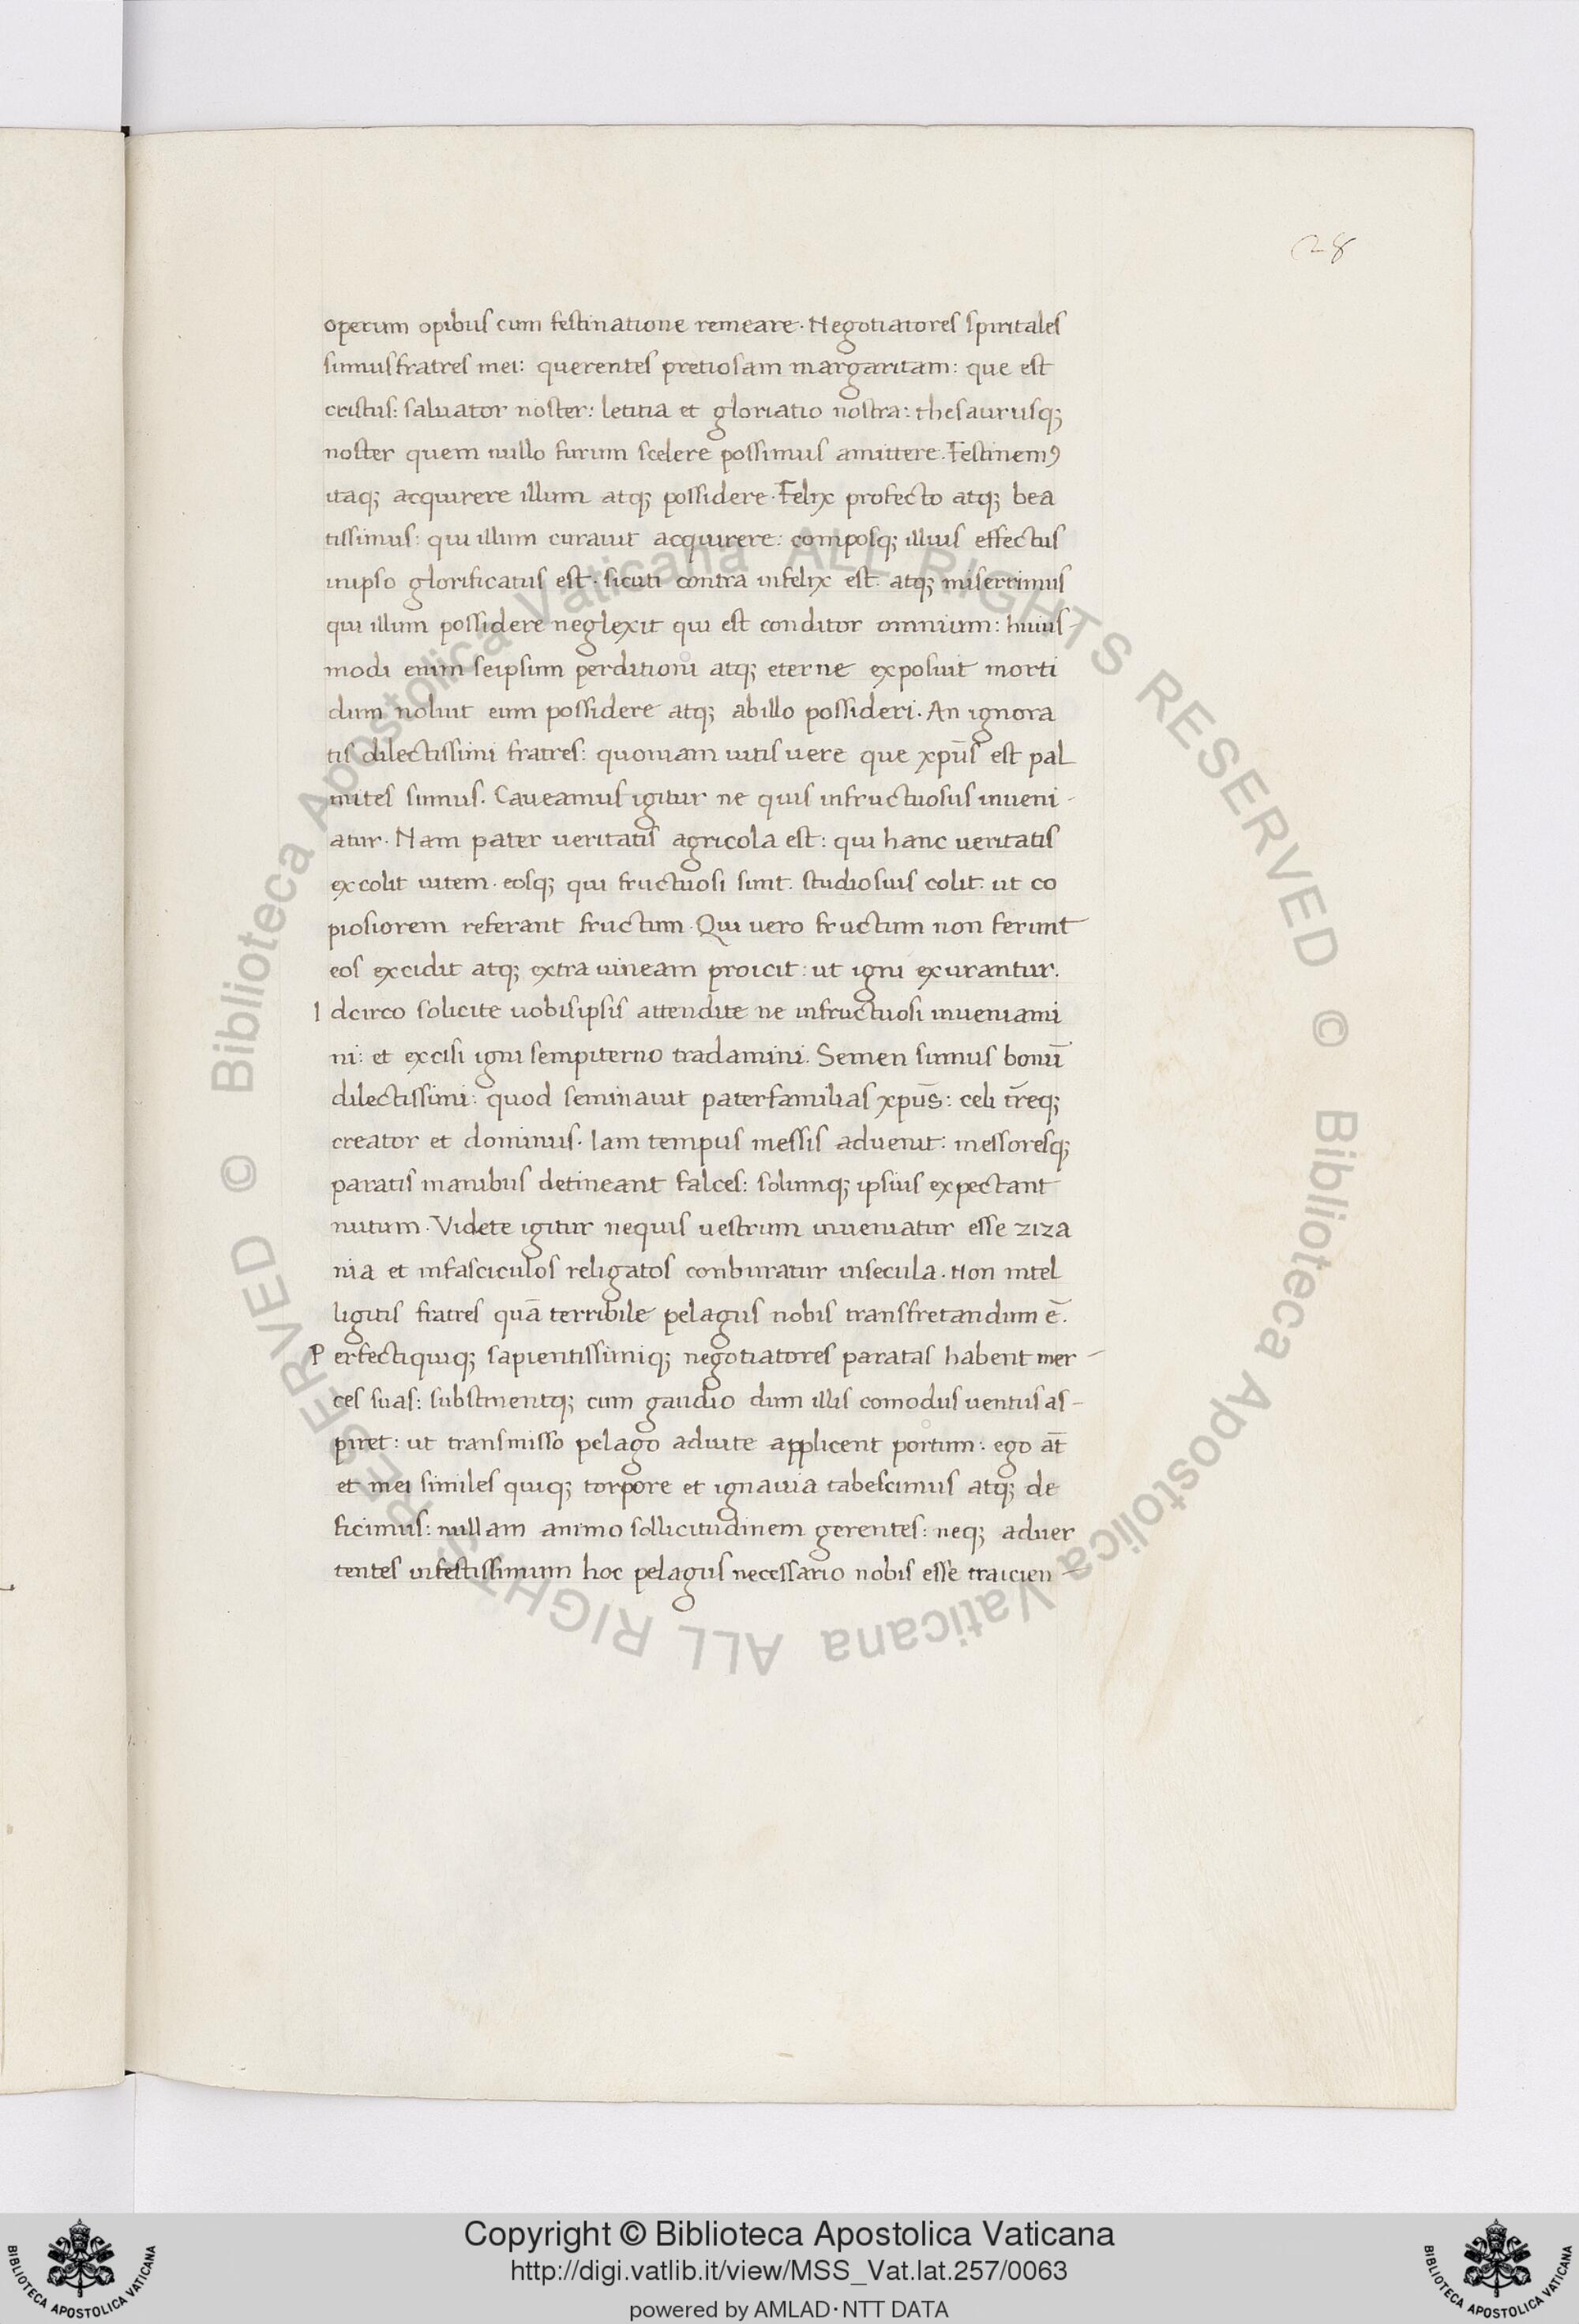 28
operum opibus cum festinatione remeare. Negotiatores spiritales
simus fratres mei: querentes pretiosam margaritam: que est
cristus: saluator noster: letitia et gloriatio nostra: thesaurusq;
noster quem nullo furum scelere possimus amittere. Festinem9
itaq; acquirere illum atq; possidere. Felix profecto atq; bea
tissimus: qui illum curauit acquirere: composq; illius effectus
inipso glorificatus est. sicuti contra infelix est. atq; miserrimus
qui illum possidere neglexit qui est conditor omnium: huius-
modi enim seipsum perditioni atq; eterne exposuit morti
dum noluit eum possidere atq; abillo possideri. An ignora
tis dilectissimi fratres: quoniam uitis uere que xpūs est pal
mites sumus. Caveamus igitur ne quis infructuosus inueni-
atur. Nam pater ueritatis agricola est: qui hanc ueritatis
excolit uitem. eosq; qui fructuosi sunt. studiosius colit. ut co
piosiorem referant fructum. Qui uero fructum non ferunt
eos excidit atq; extra uineam proicit: ut igni exurantur.
Idcirco solicite uobisipsis attendite ne infructuosi inueniami
ni: et excisi igni sempiterno tradamini. Semen sumus bonū
dilectissimi: quod seminauit paterfamilias xpūs: celi tr̄eq;
creator et dominus. Iam tempus messis aduenit: messoresq;
paratis manibus detineant falces: solumq; ipsius expectant
nutum. Videte igitur nequis uestrum inueniatur esse ziza
nia et infasciculos religatos conburatur insecula. Non intel
ligitis fratres quā terribile pelagus nobis transfretandum ē.
Perfectiquiq; sapientissimiq; negotiatores paratas habent mer-
ces suas: substinentq; cum gaudio dum illis comodus uentus as-
piret: ut transmisso pelago aduite applicent portum: ego at̄
et mei similes quiq; torpore et ignauia tabescimus atq; de
ficimus: nullam animo sollicitudinem gerentes: neq; aduer
tentes infestissimum hoc pelagus necessario nobis esse traicien-
© Biblioteca Apostolica Vaticana ALL RIGHTS RESERVED
© Biblioteca Apostolica Vaticana ALL RIGHTS RESERVED
Copyright © Biblioteca Apostolica Vaticana
http://digi.vatlib.it/view/MSS_Vat.lat.257/0063
powered by AMLAD·NTT DATA
BIBLIOTECA APOSTOLICA VATICANA
BIBLIOTECA APOSTOLICA VATICANA